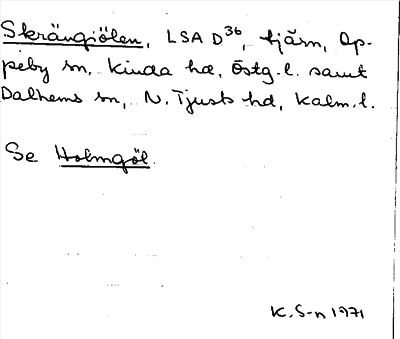 Skrängiölen, LSA D³⁶, tjärn, Op-
peby sn, Kinda hd, Östg. l. samt
Dalhems sn, N. Tjusts hd, Kalm. l.
Se Holmgöl.
K. S-n 1971